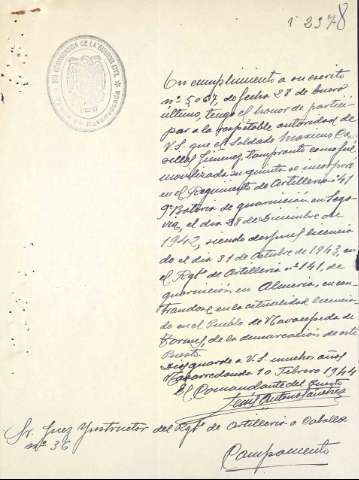 1 2378
En cumplimiento a su escrito
nº 5067, de fecha 28 de Enero
último, tengo el honor de partici-
par a la respetable autoridad de
V.S. que el Soldado Maximo
Jimenez,
movilizado su quinta se incorporó
en el Regimiento de Artilleria nº 41
9ª Bateria de guarnición en Sego-
via, el dia 28 de Diciembre de
1942, siendo despues licencia
do el dia 31 de Octubre de 1943, en
el Rgtº de Artilleria nº 141, de
guarnición en Almeria, encon-
trandose en la actualidad licencia
do en el Pueblo de Navacepeda de
Tormes, de la demarcación de este
Puesto.
Dios guarde a V.S. muchos años
Navarredonda 10 Febrero 1944
El Comandante del Puesto
Sr. Juez Ynstructor del Rgtº de Artilleria a Caballo
nº 36
Campamento